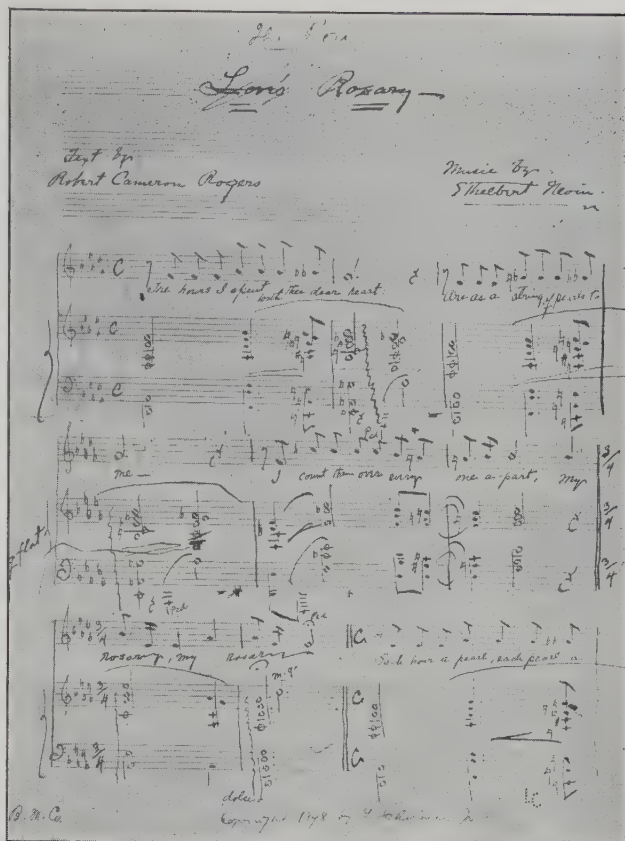 Rosary
Text by
Robert Cameron Rogers
Music by.
Ethelbert Nevin.
The hours I spent with thee dear heart
Are as a string of pearls to
me—
I count them over every one a part, my
3/4
3/4
flat
3/4
Ped
Ped
3/4
rosary, my rosary
Each hour a pearl, each pearl a
3/4
3/4
dolce
B. M. Co.
Copyright 1898 by